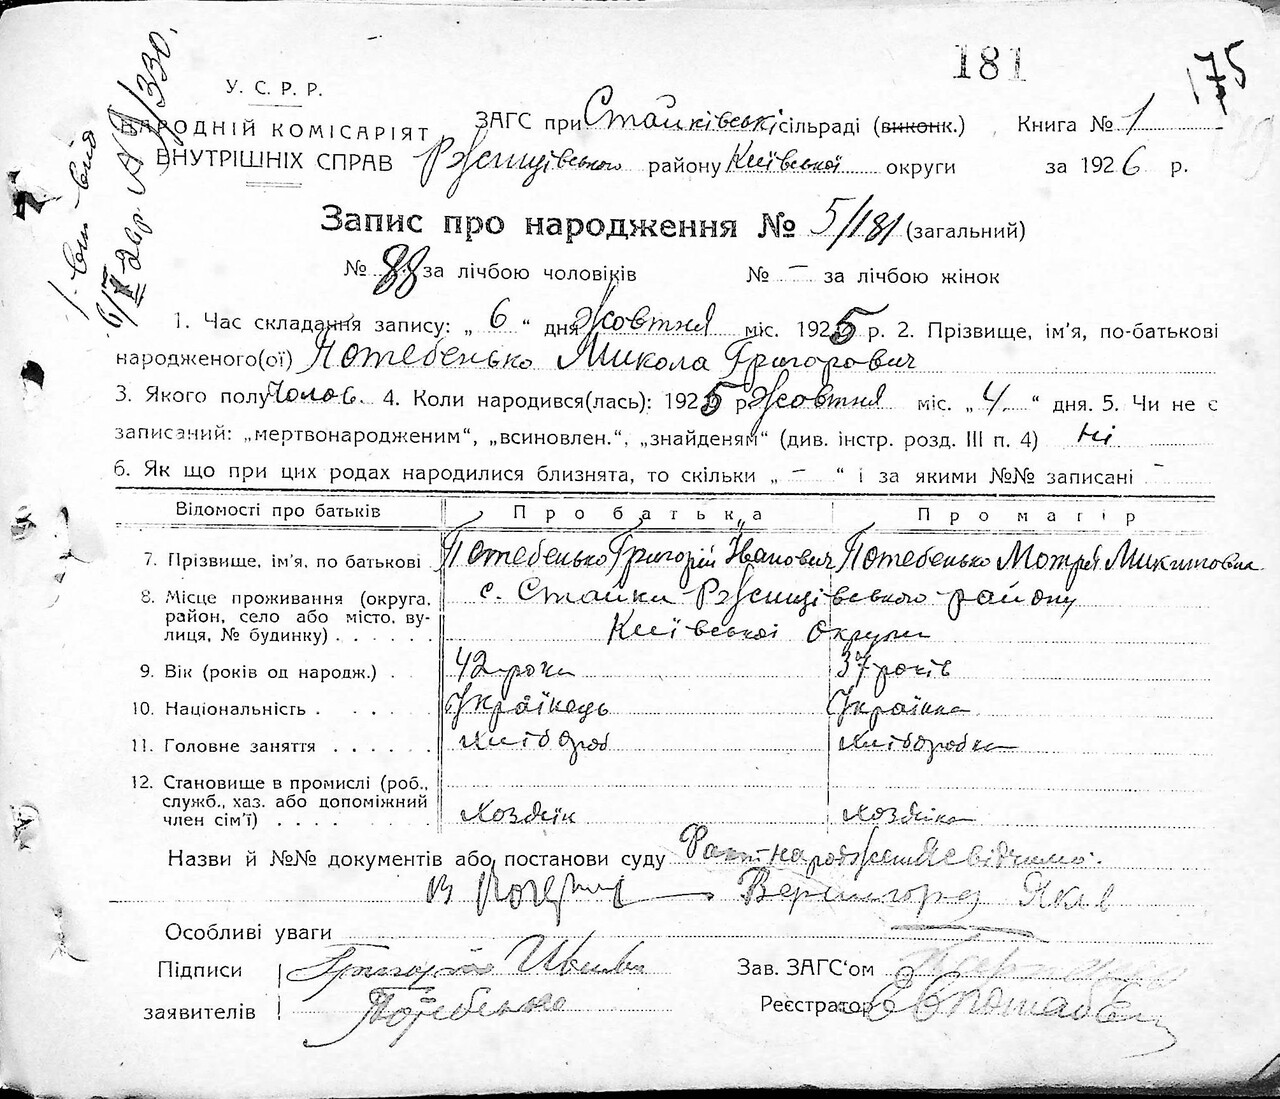 181
175
У. С. Р. Р.
НАРОДНІЙ КОМІСАРІЯТ
ВНУТРІШНІХ СПРАВ
ЗАГС при Стайківській сільраді (виконк.) Книга № 1
Ржищівського району Київської округи за 1926 р.
Запис про народження № 5/181 (загальний)
№ 88 за лічбою чоловіків № – за лічбою жінок
1. Час складання запису: „ 6 “ дня Жовтня міс. 1925 р. 2. Прізвище, ім'я, по-батькові
народженого(ої) Потебенько Микола Григорович
3. Якого полу Чолов. 4. Коли народився(лась): 1925 р. Жовтня міс. „ 4. “ дня. 5. Чи не є
записаний: „мертвонародженим“, „всиновлен.“, „знайденям“ (див. інстр. розд. III п. 4) Ні
6. Як що при цих родах народилися близнята, то скільки „ – “ і за якими №№ записані –
Відомості про батьків Про батька Про матір
7. Прізвище, ім'я, по батькові Потебенько Григорій Іванович Потебенько Мотря Микитовна
8. Місце проживання (округа, с. Стайки Ржищівського району
район, село або місто, ву-
лиця, № будинку) . . . . . . Київської Округи
9. Вік (років од народж.) . . 42 роки 37 років
10. Національність . . . . . . Українець Українка
11. Головне заняття . . . . . . Хлібороб Хліборобка
12. Становище в промислі (роб.,
служб., хаз. або допоміжний
член сім'ї) . . . . . . . . Хозяїн Хозяїка
Назви й №№ документів або постанови суду Факт народження свідчимо:
Вернигора Яків
Особливі уваги
Підписи Григорій Іванов Зав. ЗАГС'ом
заявителів Потебенько Реєстратор